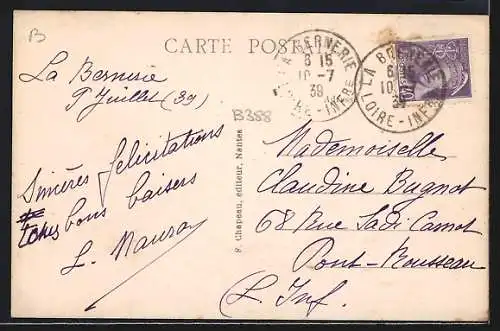 B
CARTE POSTALE
LA BERNERIE
6 15
10-7
39
LOIRE-INFRE
LA BERNERIE
6 15
10
LOIRE-INFRE
La Bernerie
9 Juillet (39)
B388
Sincères félicitations
bons baisers
L.
S. Chapeau, éditeur, Nantes
Mademoiselle
Claudine Bugnot
68 Rue Sadi Carnot
Pont-Rousseau
(L. Inf.